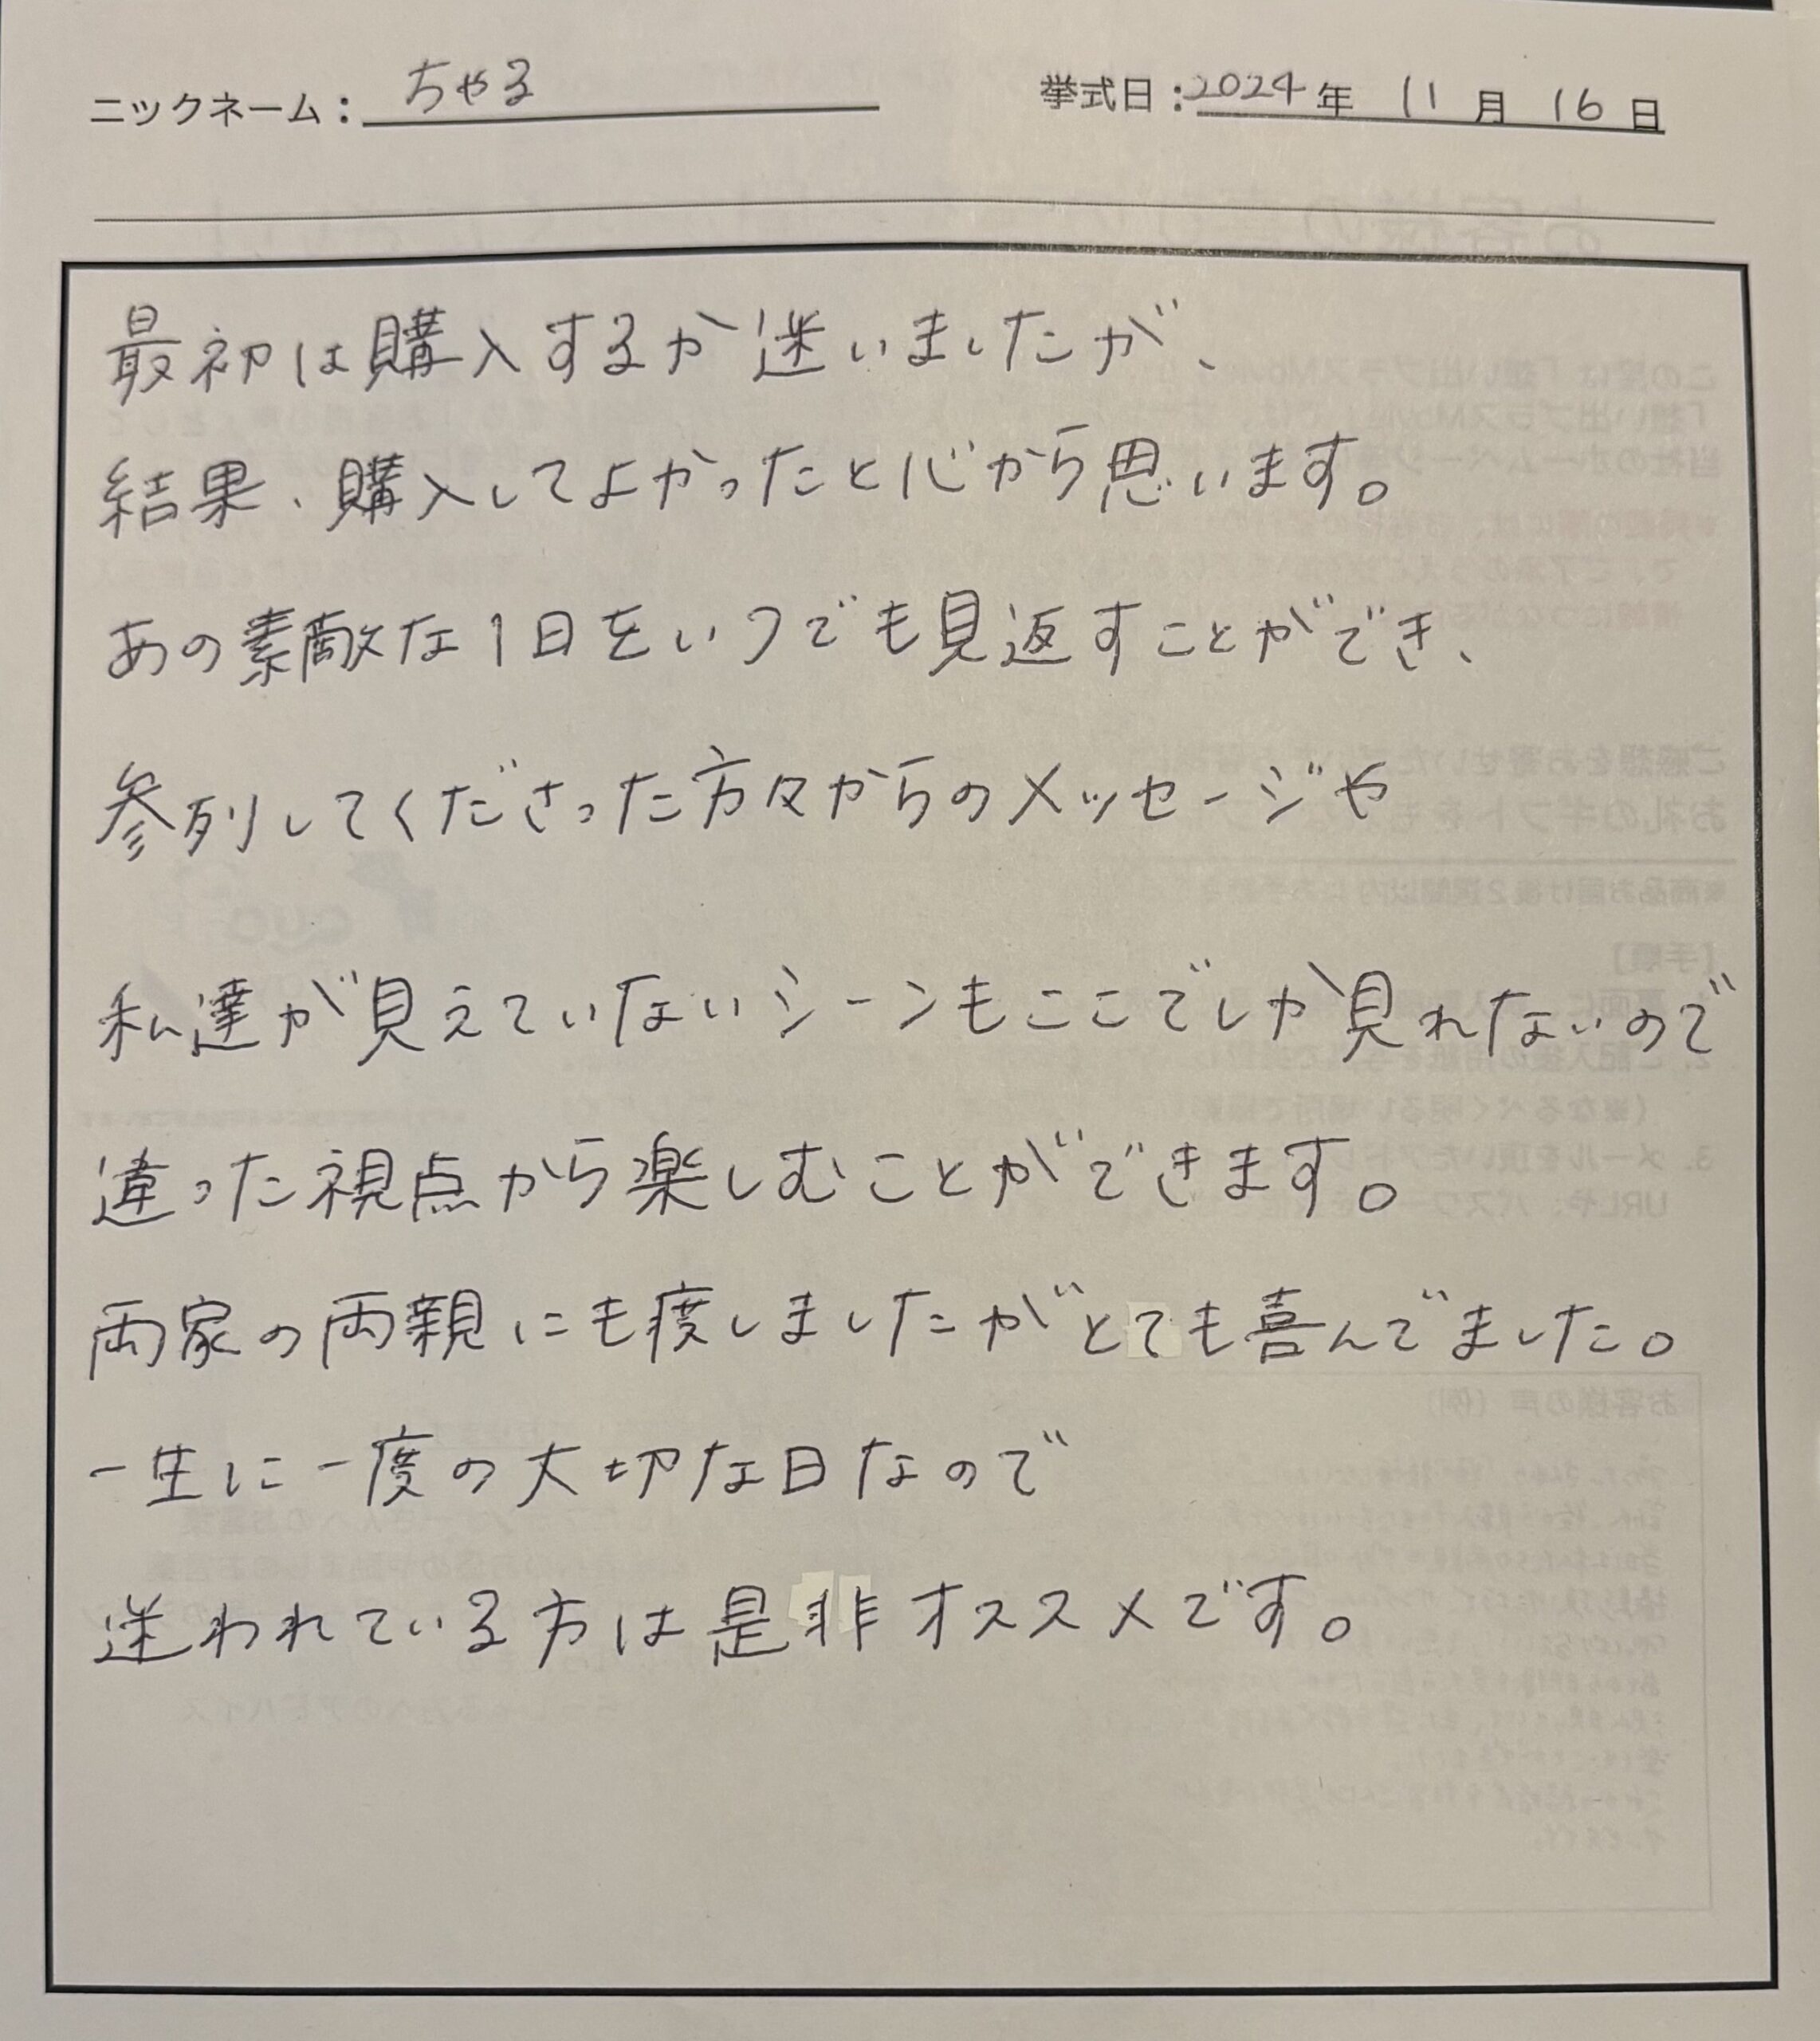 ニックネーム： ちゃる 挙式日：2024年 11月 16日
最初は購入するか迷いましたが、
結果、購入してよかったと心から思います。
あの素敵な1日をいつでも見返すことができ、
参列してくださった方々からのメッセージや
私達が見えていないシーンもここでしか見れないので
違った視点から楽しむことができます。
両家の両親にも渡しましたがとても喜んでました。
一生に一度の大切な日なので
迷われている方は是非オススメです。